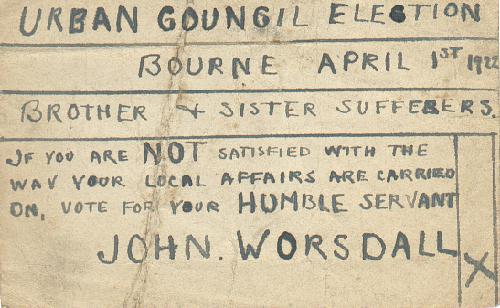 URBAN COUNCIL ELECTION
BOURNE APRIL 1ST 1922
BROTHER + SISTER SUFFERERS.
IF YOU ARE NOT SATISFIED WITH THE
WAY YOUR LOCAL AFFAIRS ARE CARRIED
ON, VOTE FOR YOUR HUMBLE SERVANT
JOHN. WORSDALL X